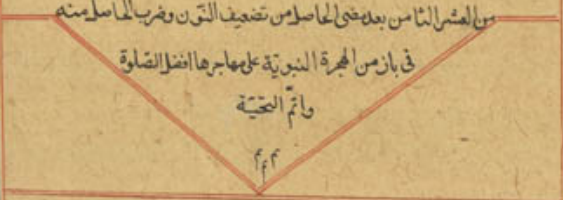 من العشر الثامن بعد مضى الحاصل من تضعيف النون وضرب الحاصل منه
فى باز من الهجرة النبوية على مهاجرها افضل الصلوة
واتم التحية
م م م